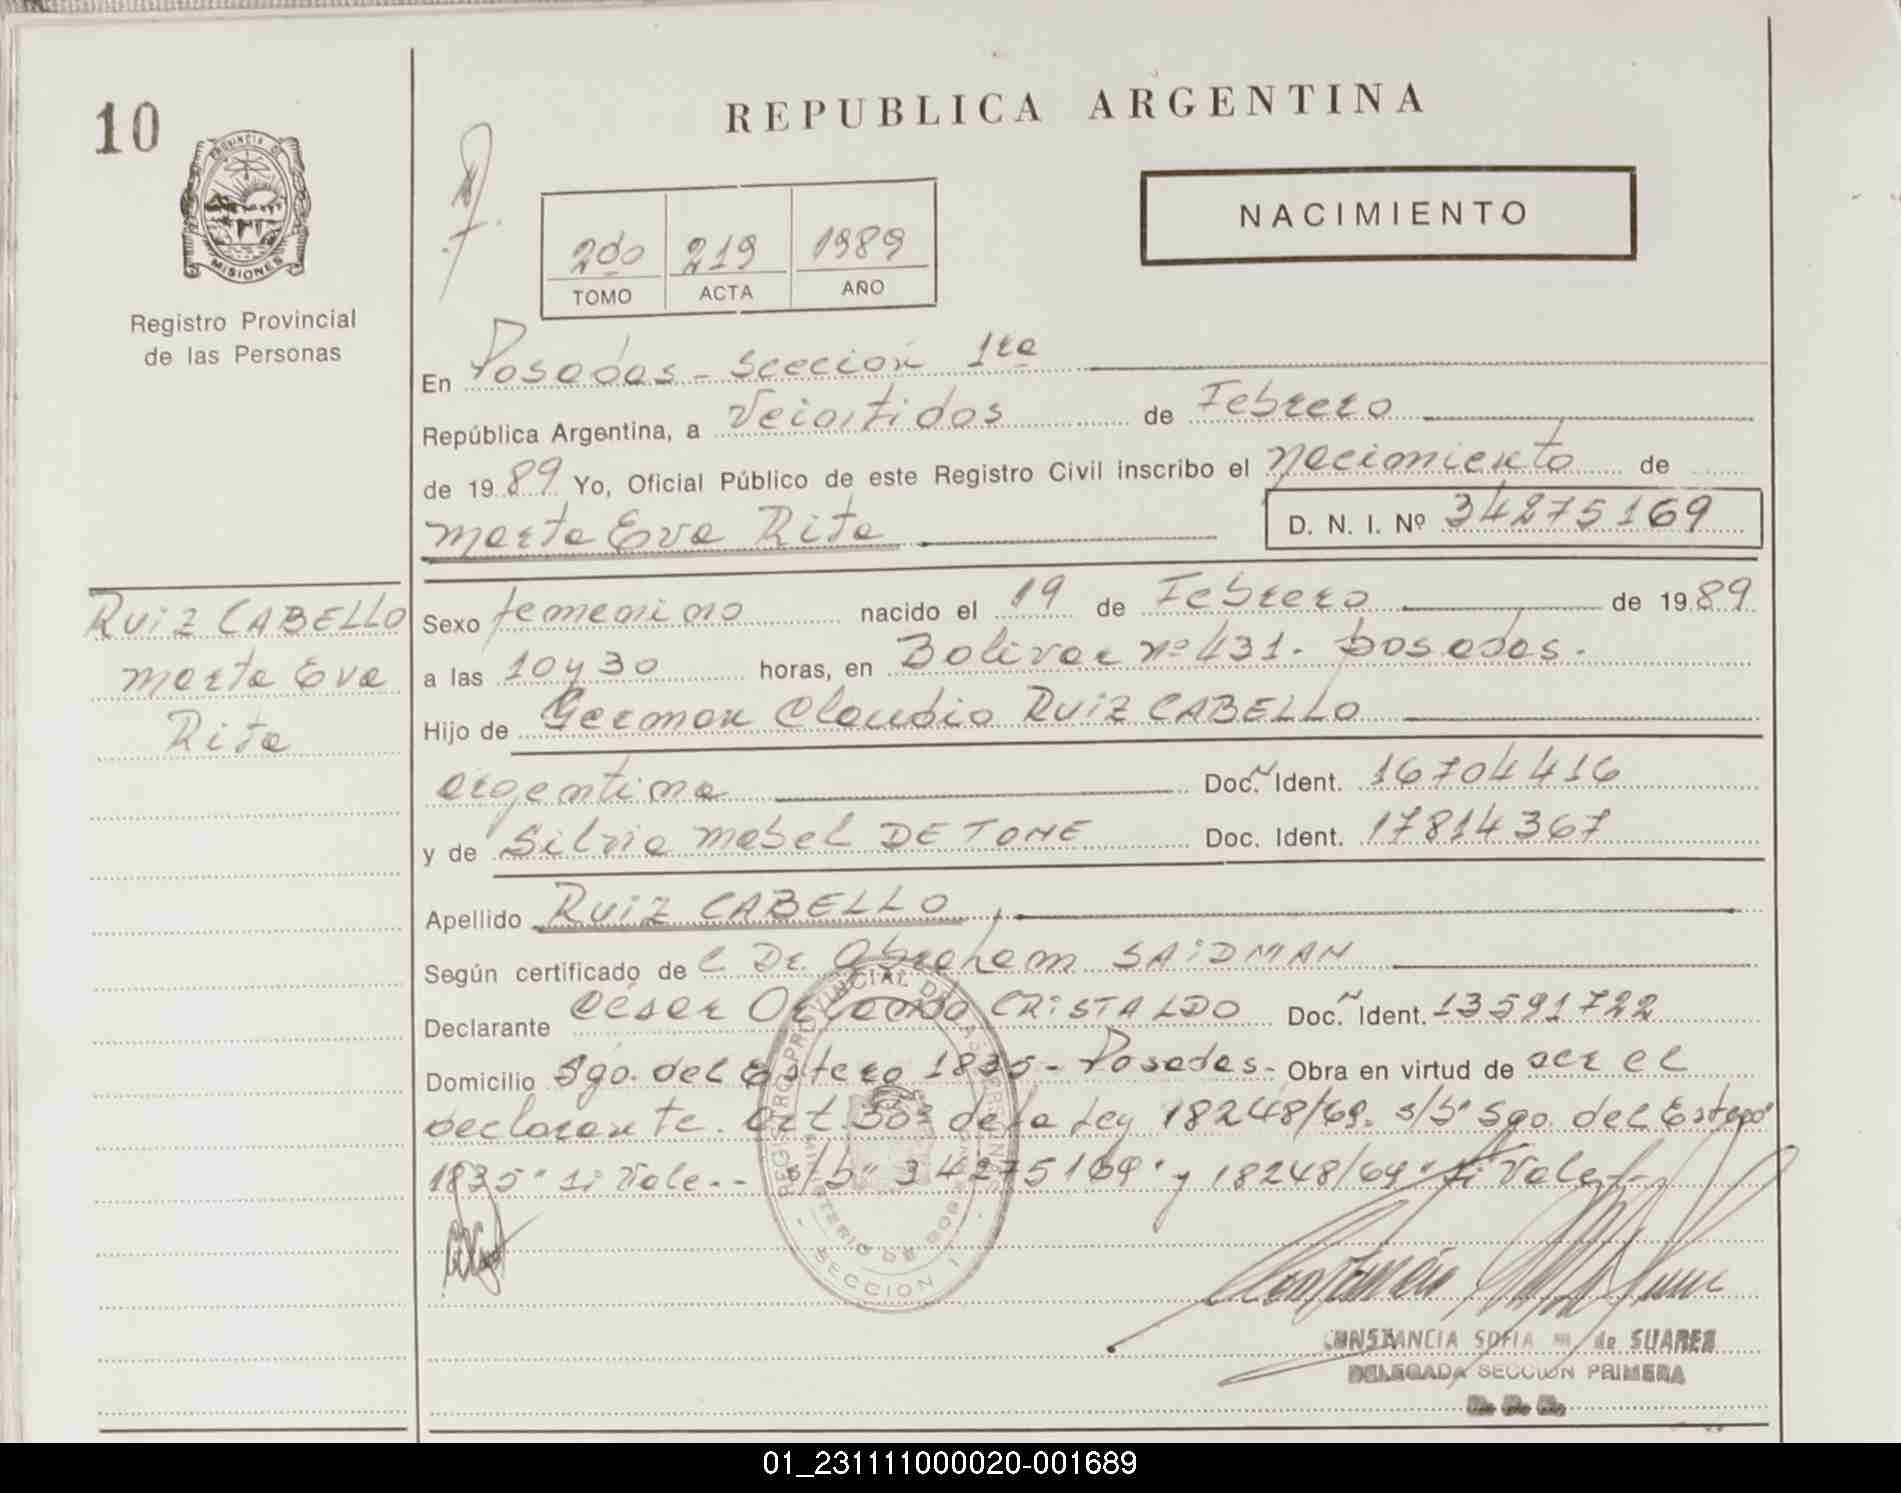 10
REPUBLICA ARGENTINA
PROVINCIA DE
MISIONES
NACIMIENTO
2do 219 1989
TOMO ACTA AÑO
Registro Provincial
de las Personas
En Posadas - Sección 1ra
República Argentina, a Veintidos de Febrero
de 1989 Yo, Oficial Público de este Registro Civil inscribo el nacimiento de
Marta Eva Rita D. N. I. Nº 34275169
RUIZ CABELLO
Marta Eva
Rita
Sexo femenino nacido el 19 de Febrero de 1989
a las 10 y 30 horas, en Bolivar nº 431. posadas.
Hijo de German Claudio RUIZ CABELLO
argentina Doc. Ident. 16704416
y de Silvia Mabel DE TONE Doc. Ident. 17814367
Apellido RUIZ CABELLO
Según certificado de el Dr. Abraham SAIDMAN
Declarante César Orlando CRISTALDO Doc. Ident. 13591722
Domicilio Sgo. del Estero 1835 - Posadas - Obra en virtud de ser el
declarante. Art. 30º de la Ley 18248/69. s/b" Sgo. del Estero
1835" si Vale.- - s/b" 34275169" y 18248/69" si Vale.-
REGISTRO PROVINCIAL DE LAS PERSONAS
MINISTERIO DE GOB
- SECCION 1 -
CONSTANCIA SOFIA M. de SUAREZ
DELEGADA SECCION PRIMERA
01_231111000020-001689